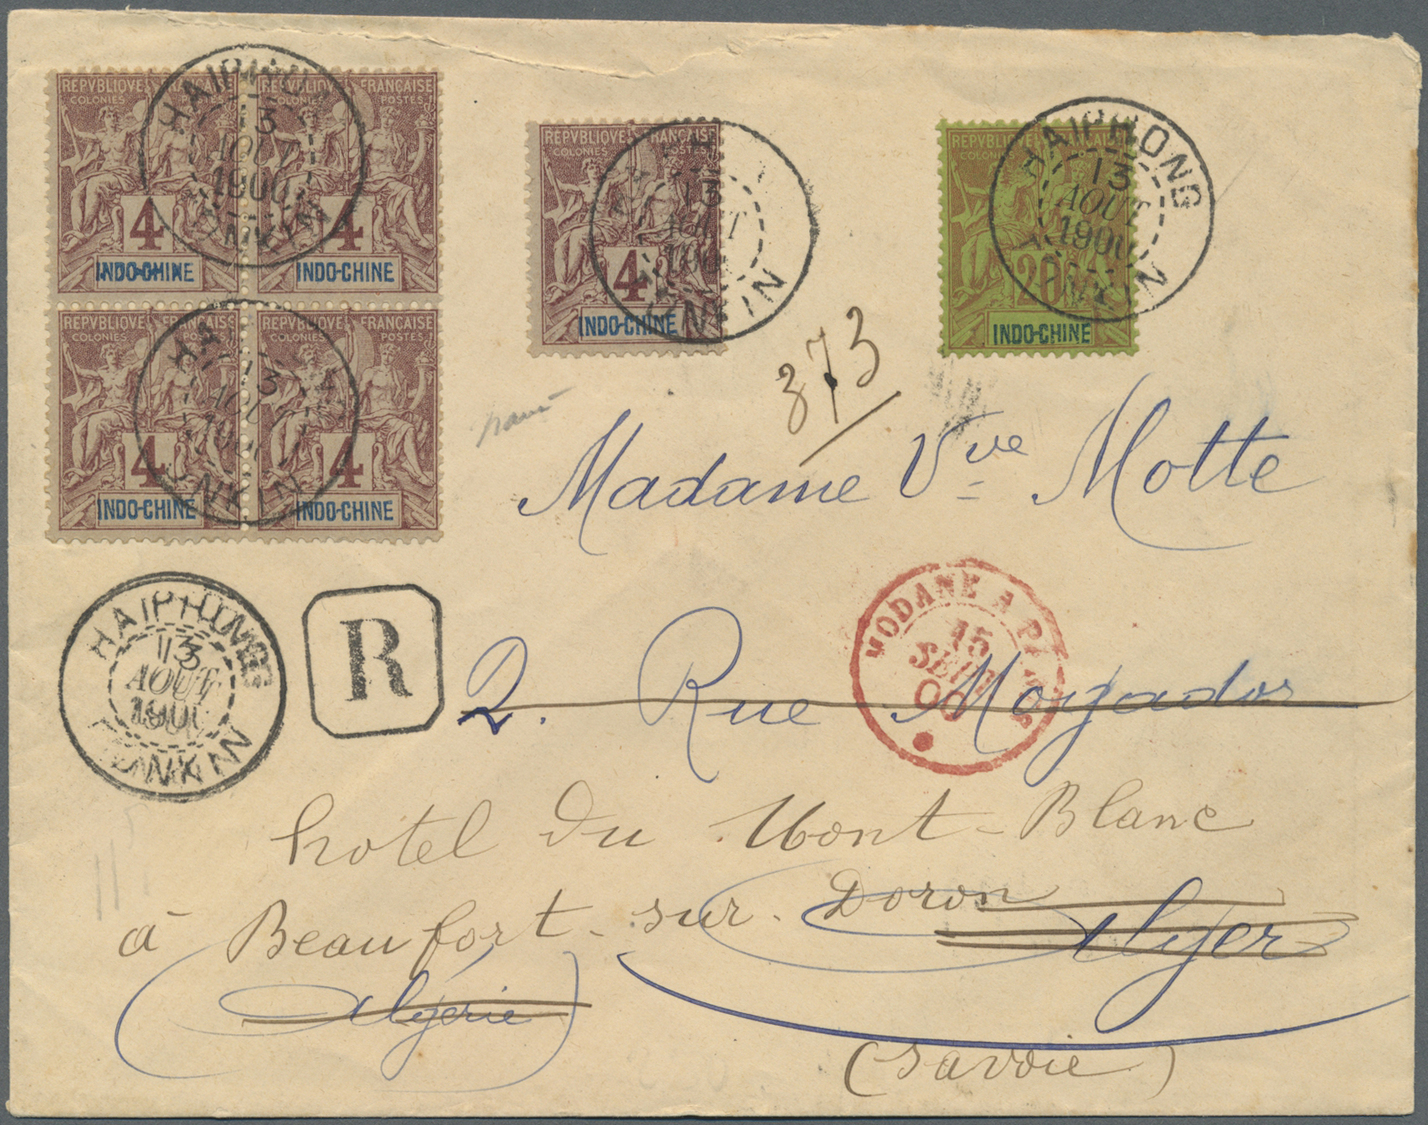 REPVBLIQVE FRANÇAISE
COLONIES POSTES
4
INDO-CHINE
REPVBLIQVE FRANÇAISE
COLONIES POSTES
4
INDO-CHINE
REPVBLIQVE FRANÇAISE
COLONIES POSTES
4
INDO-CHINE
REPVBLIQVE FRANÇAISE
COLONIES POSTES
4
INDO-CHINE
HAIPHONG
13
AOUT
1900
TONKIN
13
AOUT
1900
TONKIN
REPVBLIQVE FRANÇAISE
COLONIES POSTES
4
INDO-CHINE
13
AOUT
TONKIN
20
INDO-CHINE
HAIPHONG
13
AOUT
1900
TONKIN
373
Madame Vve Motte
HAIPHONG
13
AOUT
1900
TONKIN
R
MODANE A PARIS
15
SEPT
00
2. Rue Mogador
hotel du Mont-Blanc
à Beaufort-sur-Doron
Alger
(Algérie)
(Savoie)